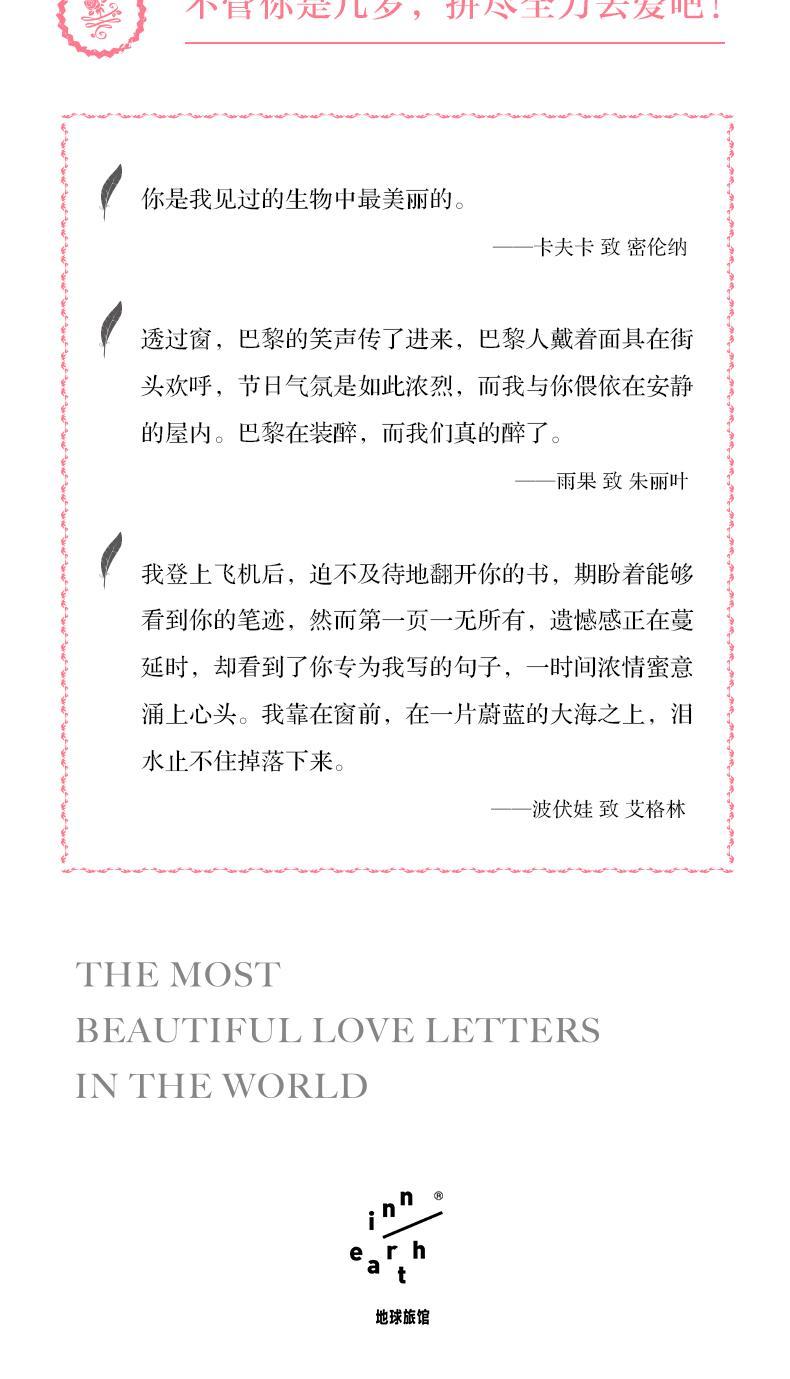 不管你是几岁，拼尽全力去爱吧！
你是我见过的生物中最美丽的。
——卡夫卡 致 密伦纳
透过窗，巴黎的笑声传了进来，巴黎人戴着面具在街
头欢呼，节日气氛是如此浓烈，而我与你偎依在安静
的屋内。巴黎在装醉，而我们真的醉了。
——雨果 致 朱丽叶
我登上飞机后，迫不及待地翻开你的书，期盼着能够
看到你的笔迹，然而第一页一无所有，遗憾感正在蔓
延时，却看到了你专为我写的句子，一时间浓情蜜意
涌上心头。我靠在窗前，在一片蔚蓝的大海之上，泪
水止不住掉落下来。
——波伏娃 致 艾格林
THE MOST
BEAUTIFUL LOVE LETTERS
IN THE WORLD
inn ®
earth
地球旅馆